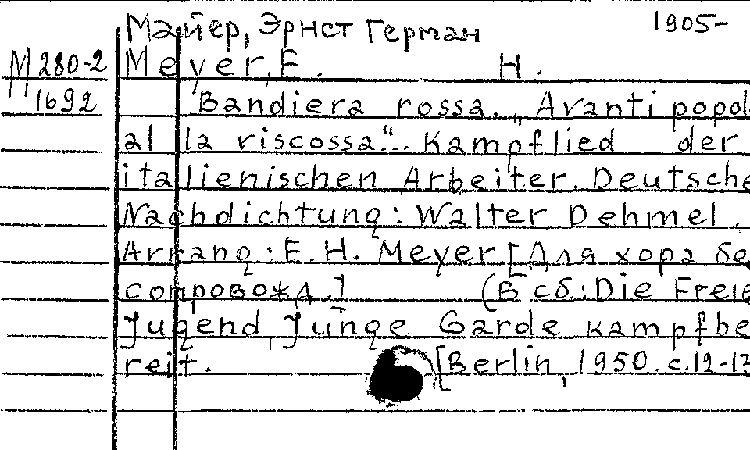 Майер, Эрнст Герман 1905-
М 280-2 Meyer, E. H.
1692 Bandiera rossa. „Avanti popol
al la riscossa“. Kampflied der
italienischen Arbeiter. Deutsche
Nachdichtung: Walter Dehmel.
Arrang: E. H. Meyer [Для хора бе
сопровожд.] (В сб.: Die Freie
Jugend, Junge Garde kampfbe
reit. [Berlin, 1950. с. 12-13